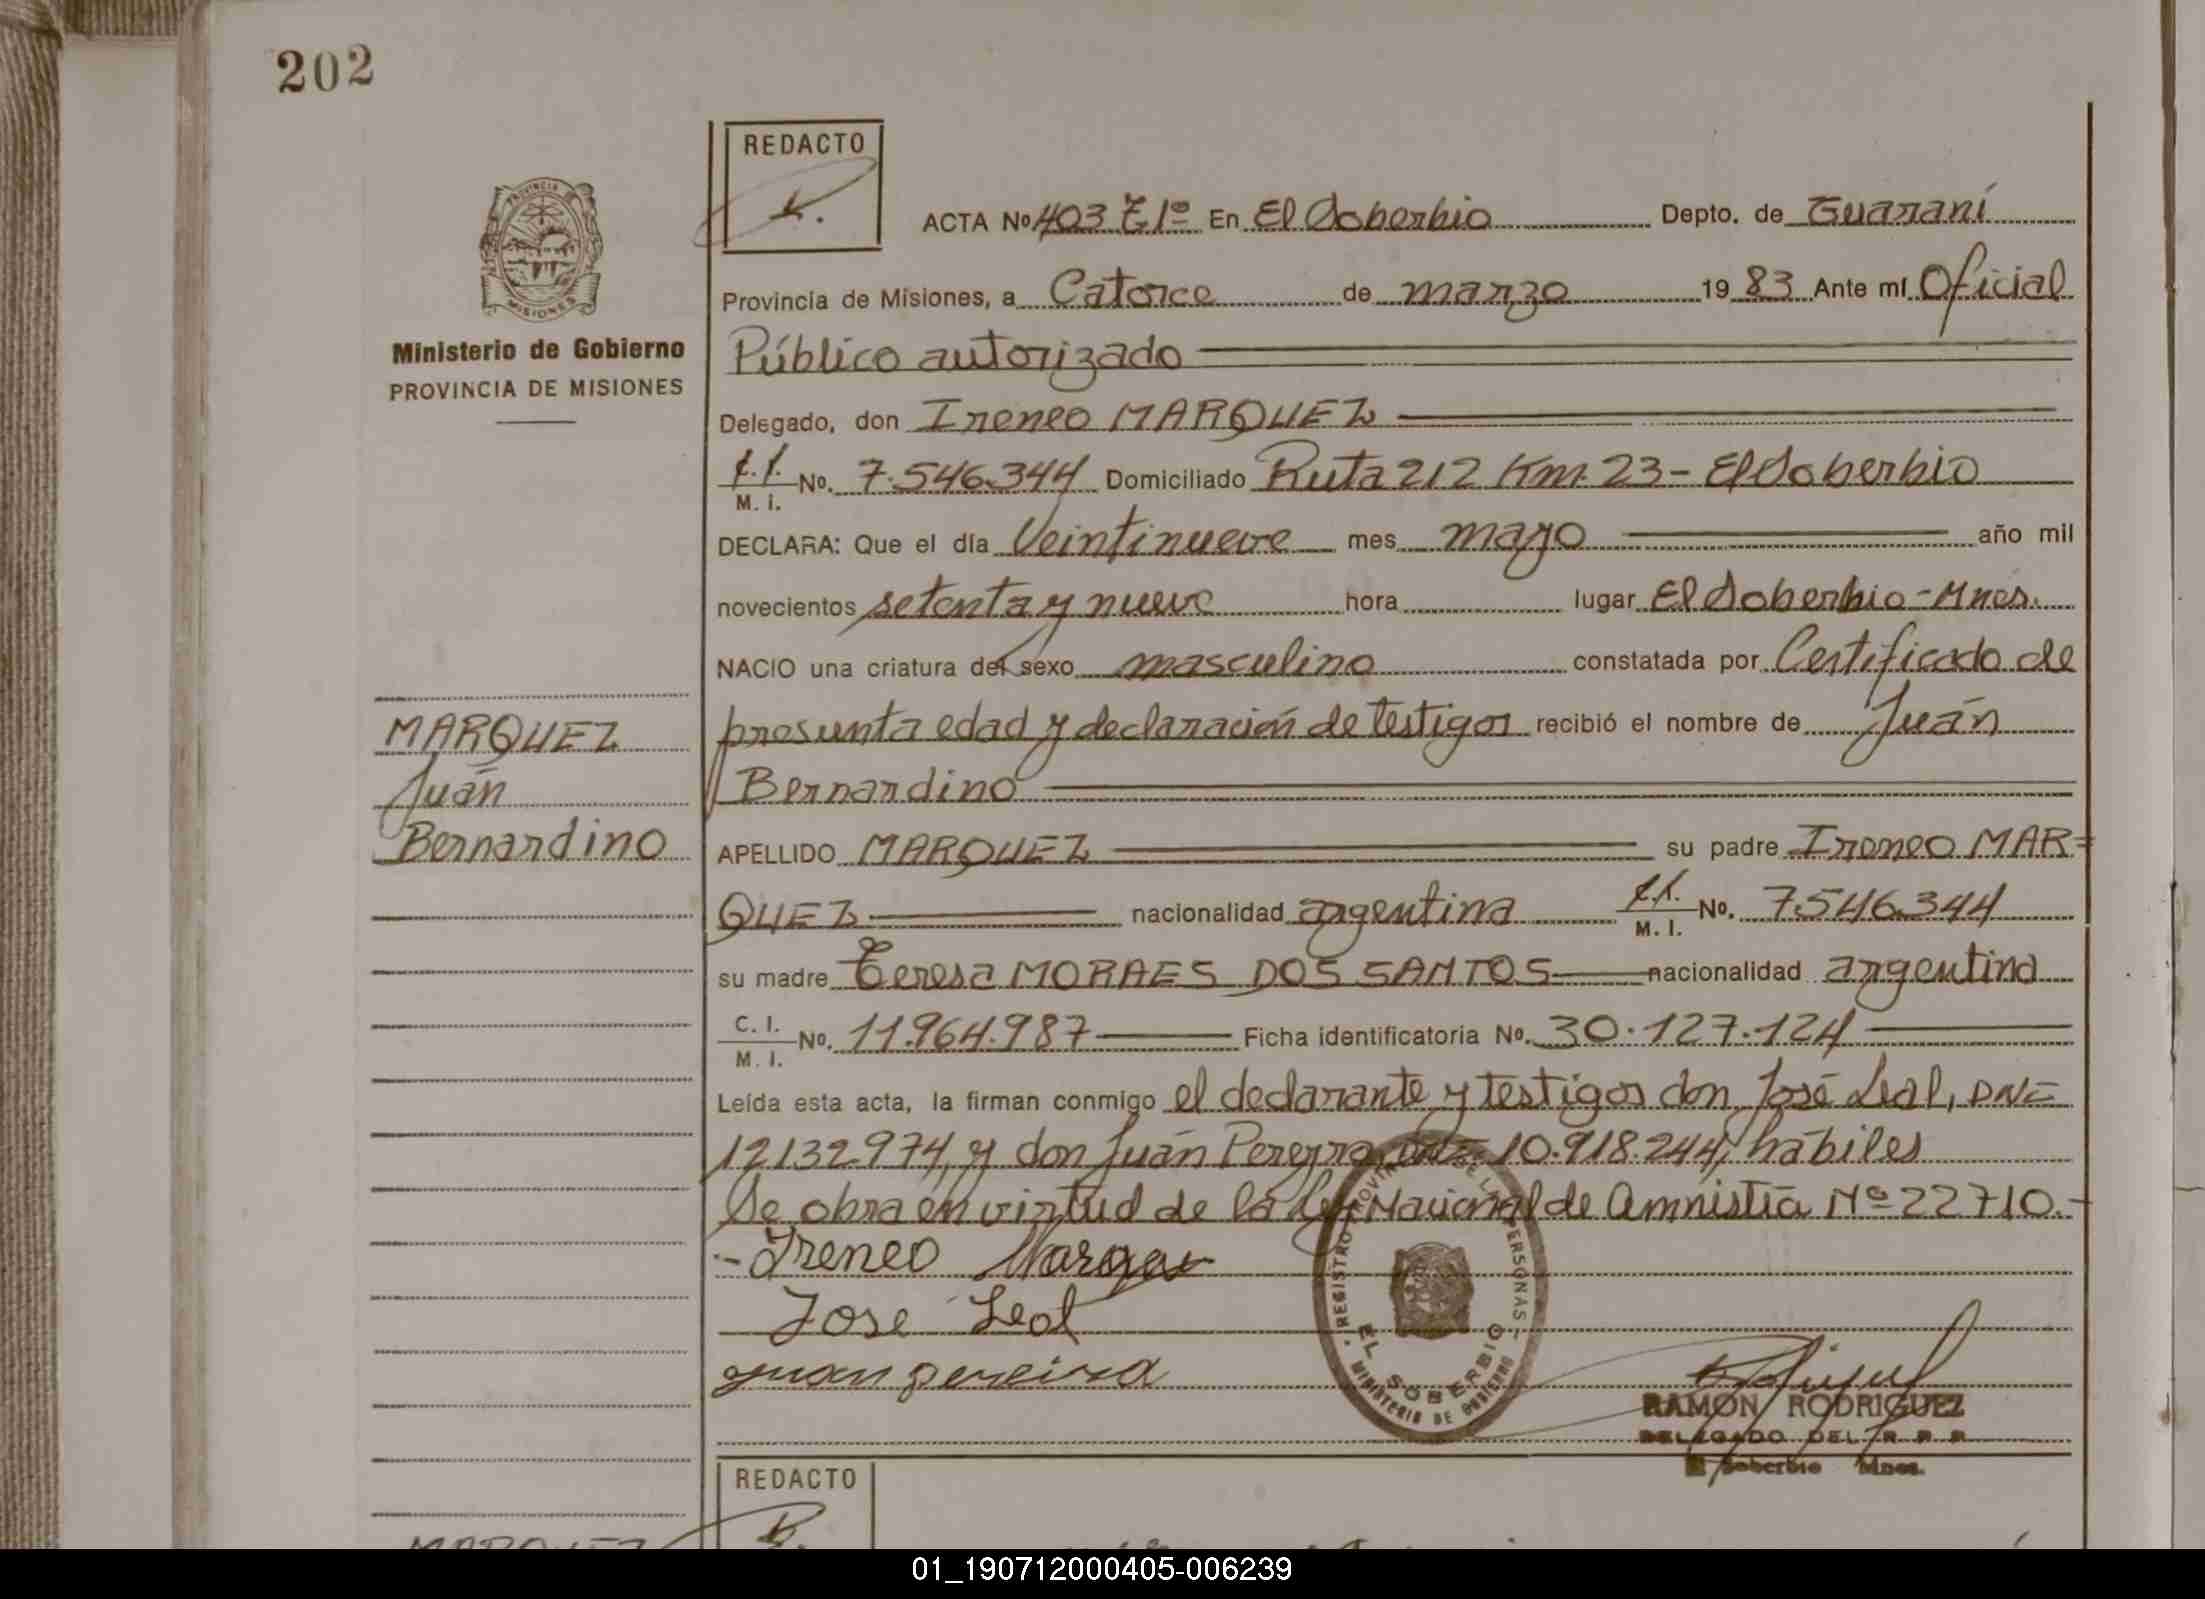 202
REDACTO
ACTA No 403 T1º En El Soberbio Depto. de Guaraní
Provincia de Misiones, a Catorce de marzo 19 83 Ante mí Oficial
Público autorizado
Delegado, don Ireneo MARQUEZ
M. I. No. 7.546.344 Domiciliado Ruta 212 Km. 23 - El Soberbio
DECLARA: Que el día Veintinueve mes mayo año mil
novecientos setenta y nueve hora lugar El Soberbio - Mnes.
NACIO una criatura del sexo masculino constatada por Certificado de
presunta edad y declaración de testigos recibió el nombre de Juán
Bernardino
APELLIDO MARQUEZ su padre Ireneo MAR=
QUEZ nacionalidad argentina M. I. No. 7.546.344
su madre Teresa MORAES DOS SANTOS nacionalidad argentina
C. I. M. I. No. 11.964.987 Ficha identificatoria No. 30.127.124
Leída esta acta, la firman conmigo el declarante y testigos don José Leal, DNI=
12132974, y don Juán Pereyra, DNI= 10.918.244, hábiles
Se obra en virtud de la Ley Nacional de Amnistía Nº 22710.-
- Ireneo Marques
Jose Leal
juan pereira
PROVINCIA
MISIONES
Ministerio de Gobierno
PROVINCIA DE MISIONES
MARQUEZ
Juán
Bernardino
REGISTRO PROVINCIAL DE LAS PERSONAS
EL SOBERBIO
MINISTERIO DE GOBIERNO
RAMON RODRIGUEZ
DELEGADO DEL R P P
El Soberbio Mnes.
REDACTO
MARQUEZ
01_190712000405-006239